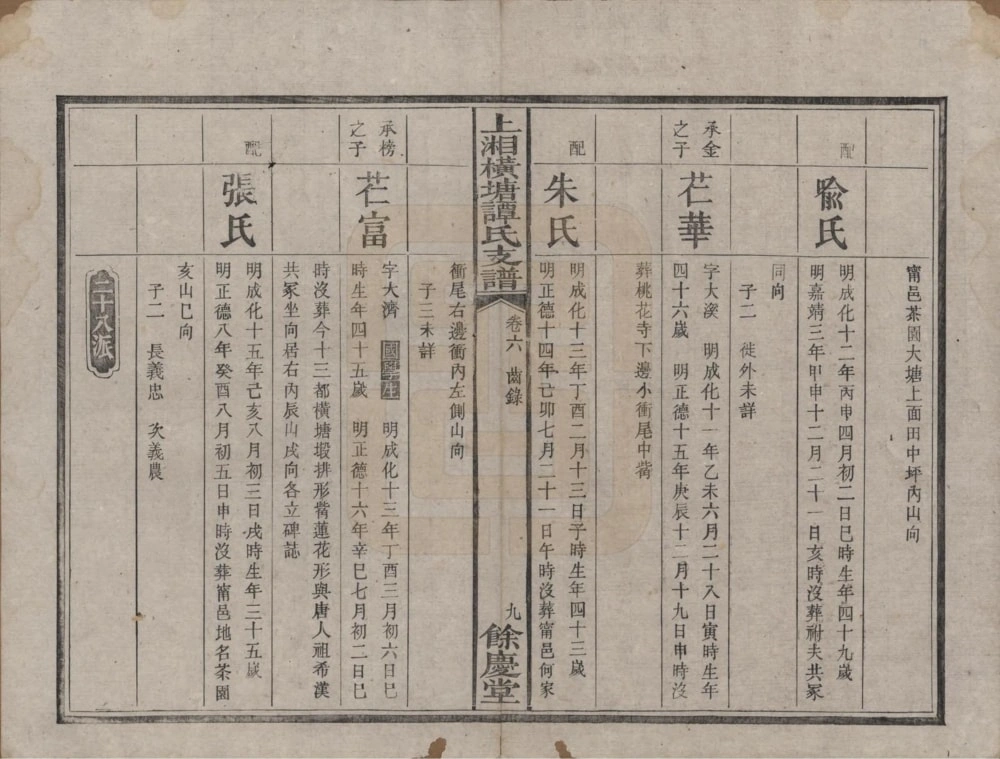 甯邑茶園大塘上面田中坪丙山向
配
喩氏
明成化十二年丙申四月初二日巳時生年四十九歲
明嘉靖三年甲申十二月二十一日亥時沒葬祔夫共冢
同向
子二 徙外未詳
承金
之子
芢華
字大渓 明成化十一年乙未六月二十八日寅時生年
四十六歲 明正德十五年庚辰十二月十九日申時沒
葬桃花寺下邊小衝尾中觜
配
朱氏
明成化十三年丁酉二月十三日子時生年四十三歲
明正德十四年己卯七月二十一日午時沒葬甯邑何家
上湘橫塘譚氏支譜
卷六 齒錄
九
餘慶堂
衝尾右邊衝內左側山向
子三未詳
承榜
之子
芢富
字大濟 國學生 明成化十三年丁酉三月初六日巳
時生年四十五歲 明正德十六年辛巳七月初二日巳
時沒葬今十三都橫塘塅排形觜蓮花形與唐人祖希漢
共冢坐向居右丙辰山戌向各立碑誌
配
張氏
明成化十五年己亥八月初三日戌時生年三十五歲
明正德八年癸酉八月初五日申時沒葬甯邑地名茶園
亥山巳向
子二 長義忠 次義農
二十八派